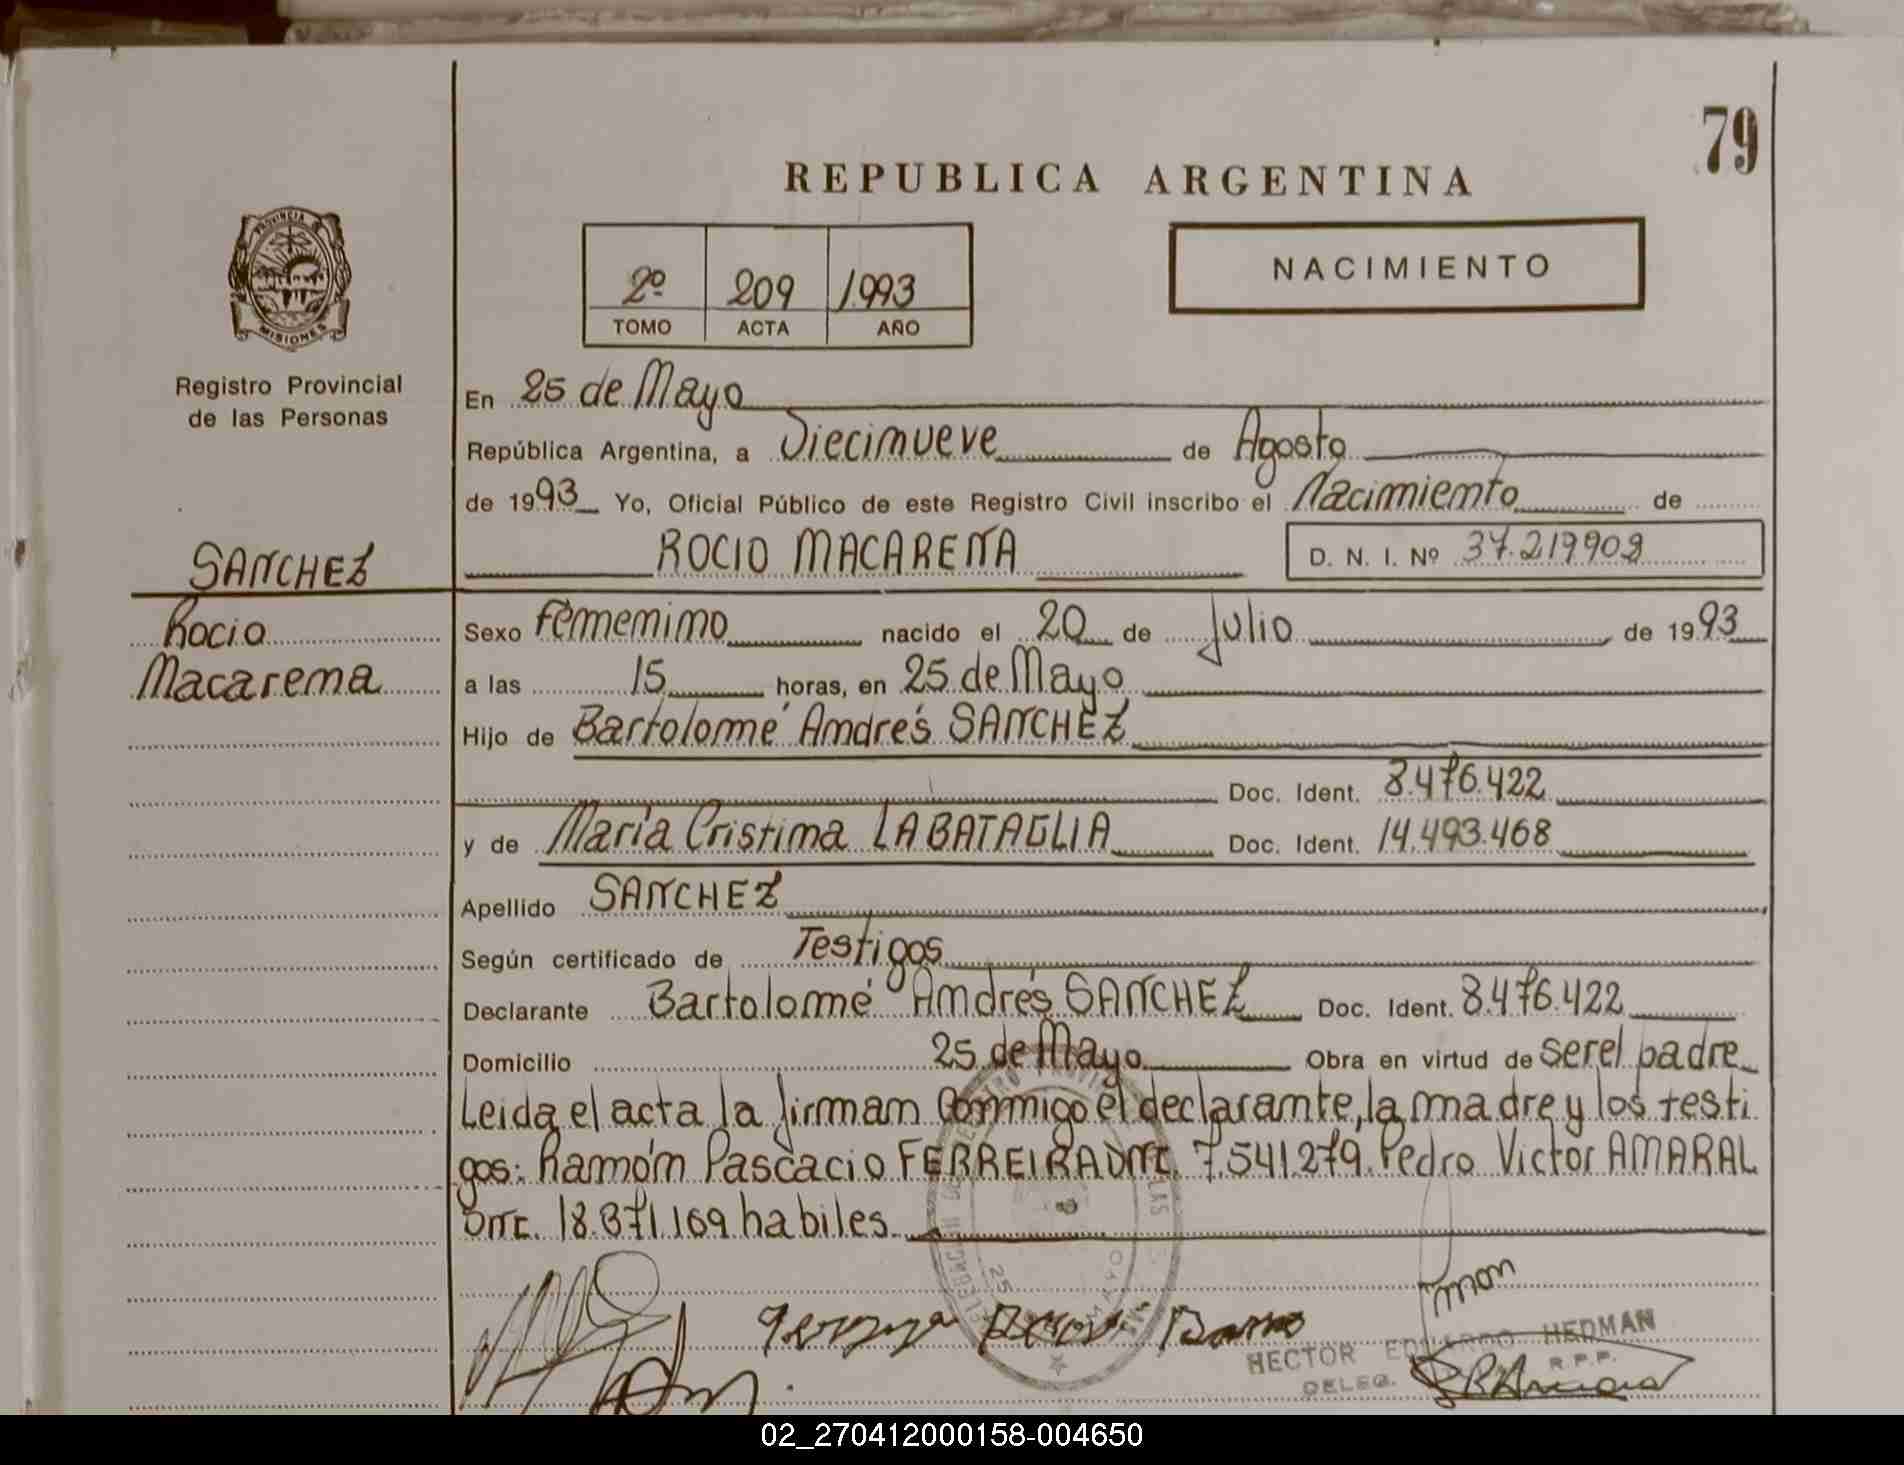 79
REPUBLICA ARGENTINA
PROVINCIA DE
MISIONES
2º 209 1993
TOMO ACTA AÑO
NACIMIENTO
Registro Provincial
de las Personas
En 25 de Mayo
República Argentina, a Diecinueve de Agosto
de 1993 Yo, Oficial Público de este Registro Civil inscribo el Nacimiento de
SANCHEZ
ROCIO MACARENA D. N. I. Nº 37.219909
Rocio
Macarena
Sexo Femenino nacido el 20 de Julio de 1993
a las 15 horas, en 25 de Mayo
Hijo de Bartolomé Andrés SANCHEZ
Doc. Ident. 8.476.422
y de María Cristina LABATAGLIA Doc. Ident. 14.493.468
Apellido SANCHEZ
Según certificado de Testigos
Declarante Bartolomé Andrés SANCHEZ Doc. Ident. 8.476.422
Domicilio 25 de Mayo Obra en virtud de ser el padre
Leida el acta la firman Conmigo el declarante, la madre y los testi
gos: Ramón Pascacio FERREIRA DNI. 7.541.279. Pedro Victor AMARAL
DNI. 18.871.169 habiles.
HECTOR EDUARDO HEDMAN
DELEG. R.P.P.
02_270412000158-004650